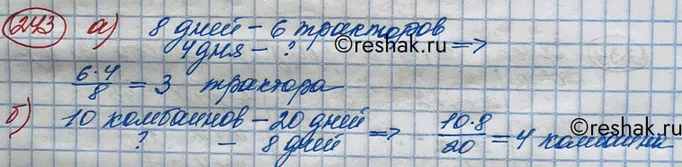 243 а) 8 дней – 6 тракторов
4 дня – ? =>
©reshak.ru
6·4/8 = 3 трактора
б) 10 комбайнов – 20 дней
? – 8 дней => 10·8/20 = 4 комбайна
©reshak.ru